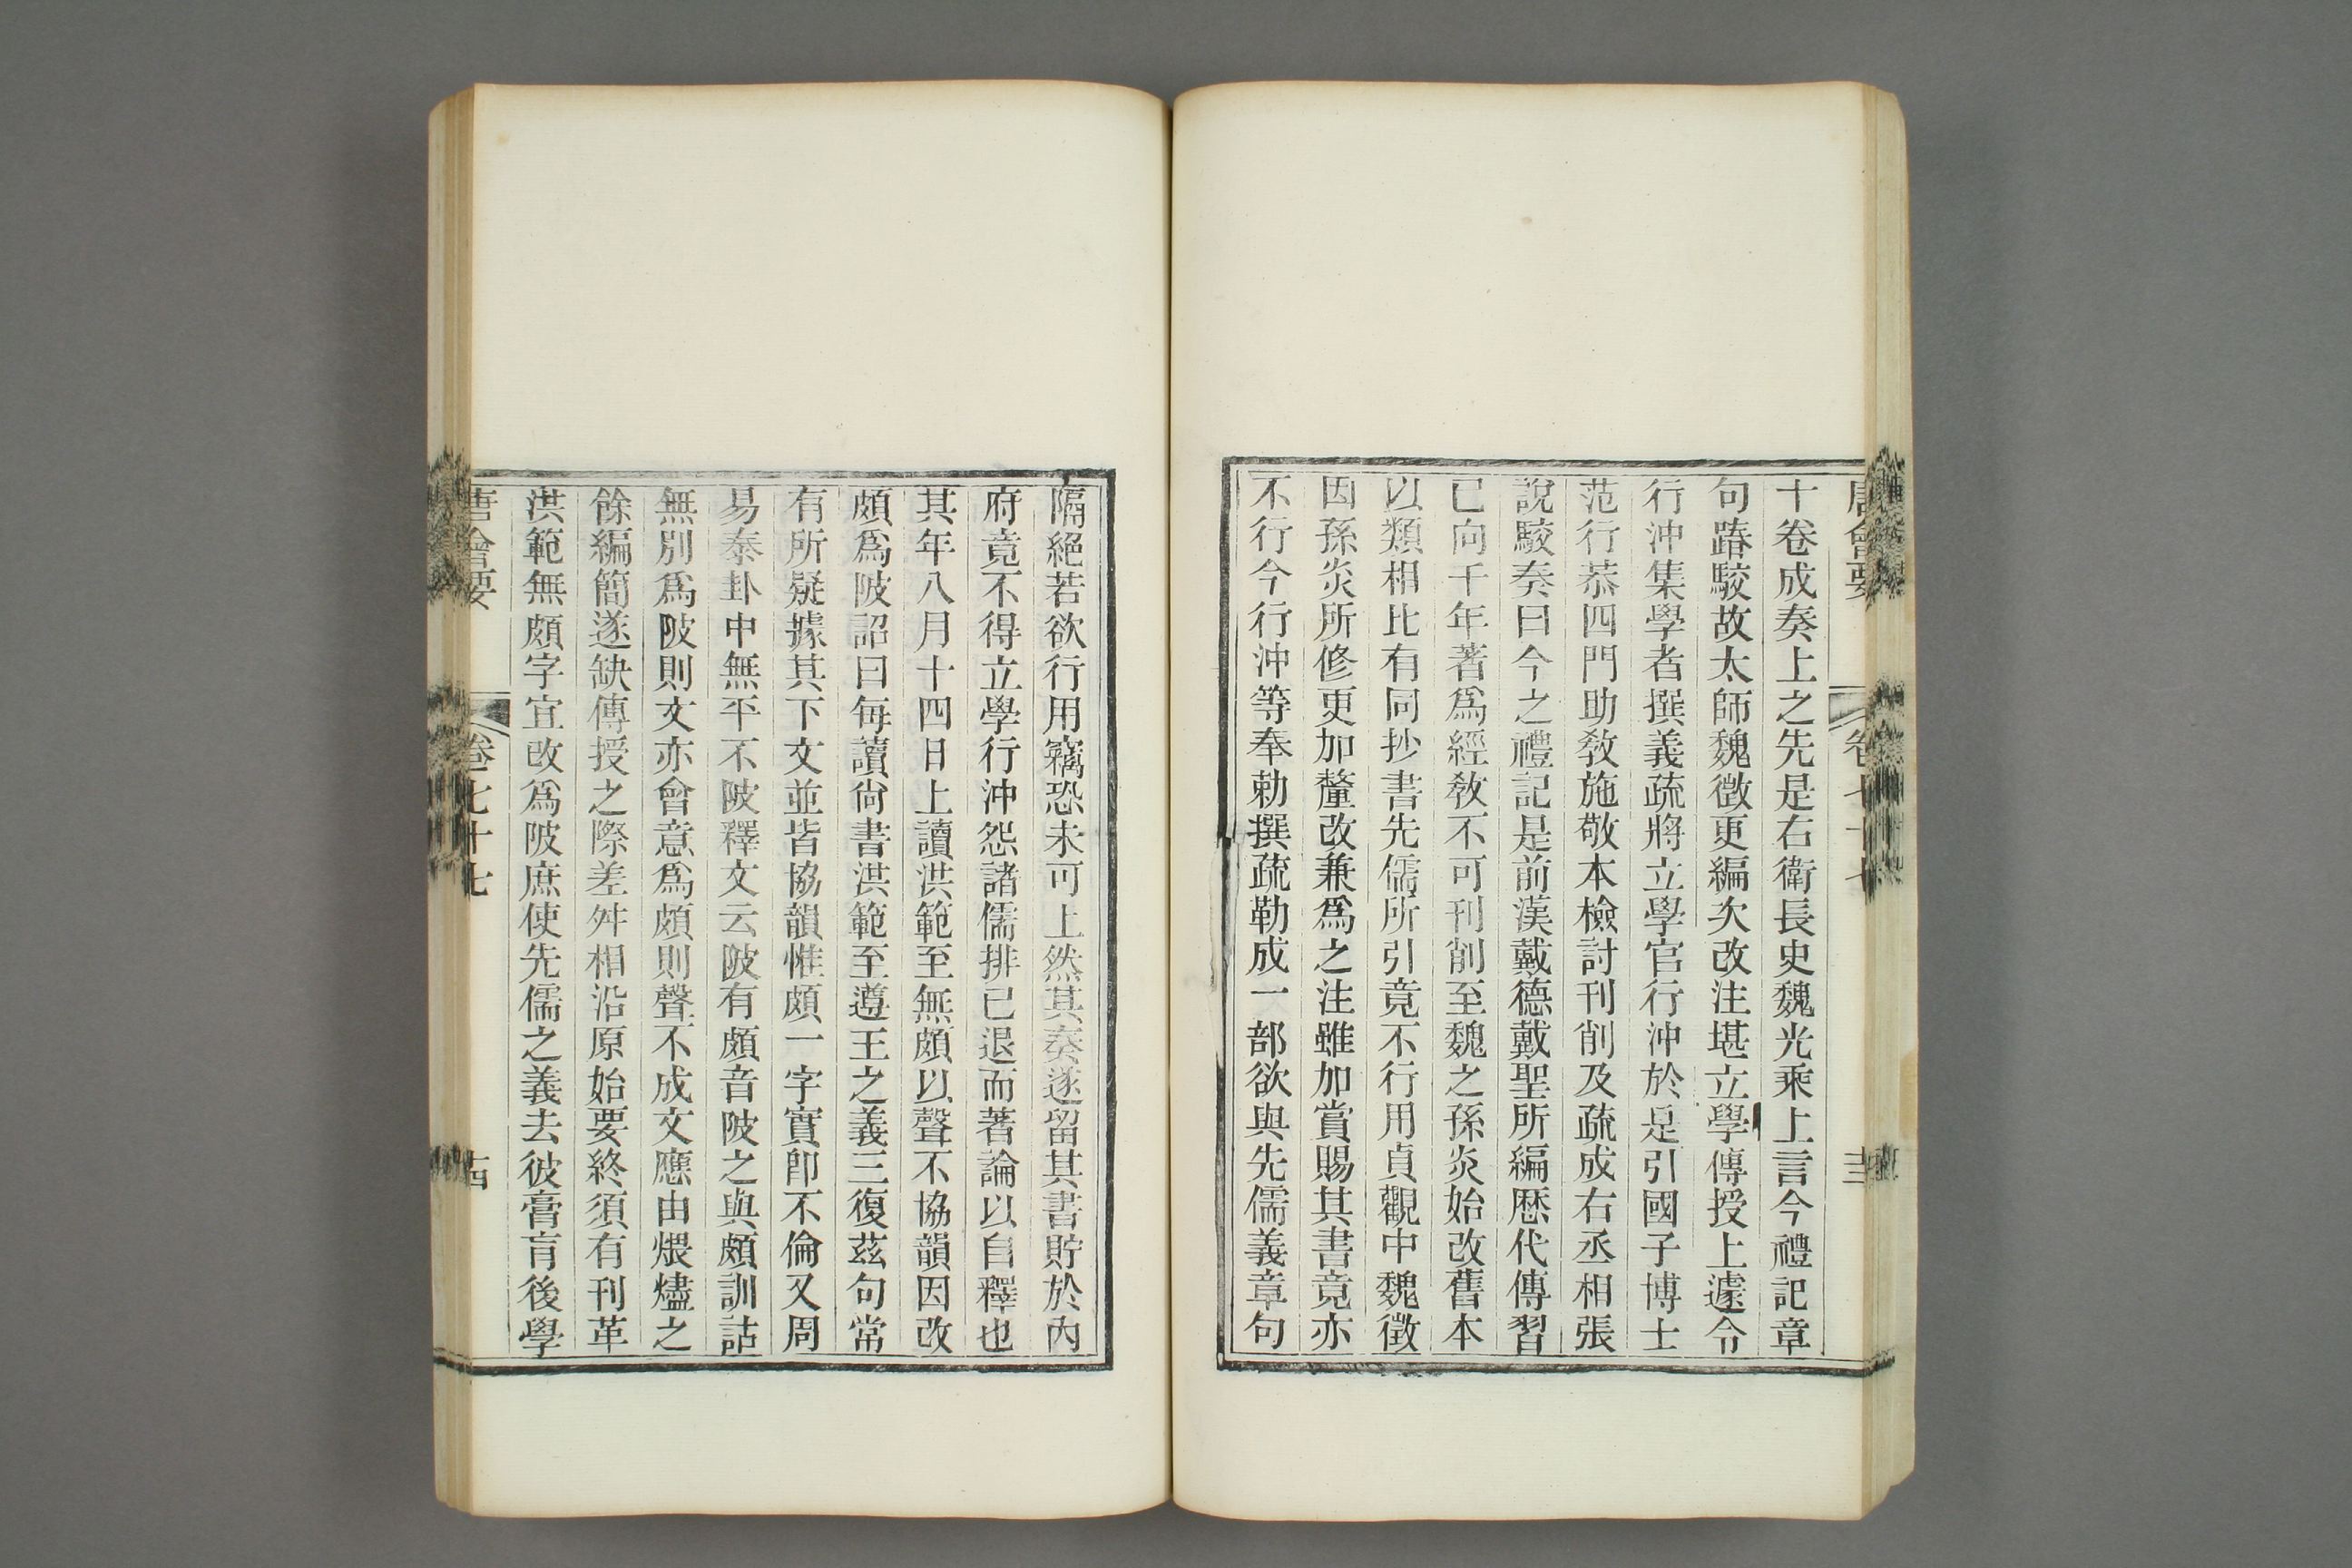 唐會要 卷七十七 十三
十卷成奏上之先是右衛長史魏光乘上言今禮記章
句踳駮故太師魏徵更編次改注堪立學傳授上遽令
行沖集學者撰義疏將立學官行沖於是引國子博士
范行恭四門助教施敬本檢討刊削及疏成右丞相張
說駮奏曰今之禮記是前漢戴德戴聖所編歷代傳習
已向千年著爲經教不可刊削至魏之孫炎始改舊本
以類相比有同抄書先儒所引竟不行用貞觀中魏徵
因孫炎所修更加釐改兼爲之注雖加賞賜其書竟亦
不行今行沖等奉勅撰疏勒成一部欲與先儒義章句
隔絕若欲行用竊恐未可上然其奏遂留其書貯於內
府竟不得立學行沖怨諸儒排已退而著論以自釋也
其年八月十四日上讀洪範至無頗以聲不協韻因改
頗爲陂詔曰每讀尙書洪範至遵王之義三復茲句常
有所疑據其下文並皆協韻惟頗一字實卽不倫又周
易泰卦中無平不陂釋文云陂有頗音陂之與頗訓詁
無別爲陂則文亦會意爲頗則聲不成文應由煨燼之
餘編簡遂缺傳授之際差舛相沿原始要終須有刊革
洪範無頗字宜改爲陂庶使先儒之義去彼膏肓後學
唐會要 卷七十七 十四